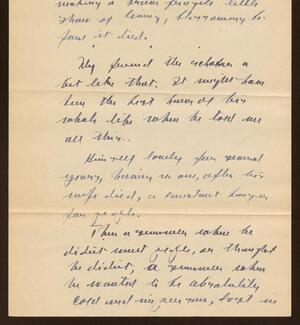 making a brave fragile little
show of being, blossoming be-
fore it died.
My friend the
a bit like that. It might have
been the last hours of his
whole life when he told me
all this..
Himself lonely for several
years, having no one, after his
wife died, a constant hunger
for people.
Then a summer when he
didn't want people, or thought
he didn't, a summer when
he wanted to be absolutely
cold and impersonal, to put in